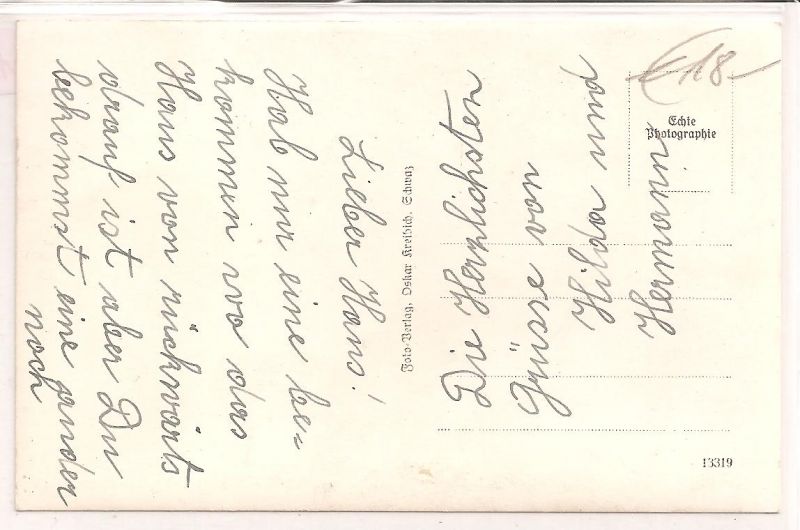 Lieber Hans!
Hab nur eine be=
kommen wo das
Haus von rückwärts
drauf ist aber Du
bekommst eine ander
noch
Foto-Verlag, Oskar Kreibich, Schwaz
Die Herzlichsten
Grüsse von
Hilda und
Hermann
€18-
Echte
Photographie
13319